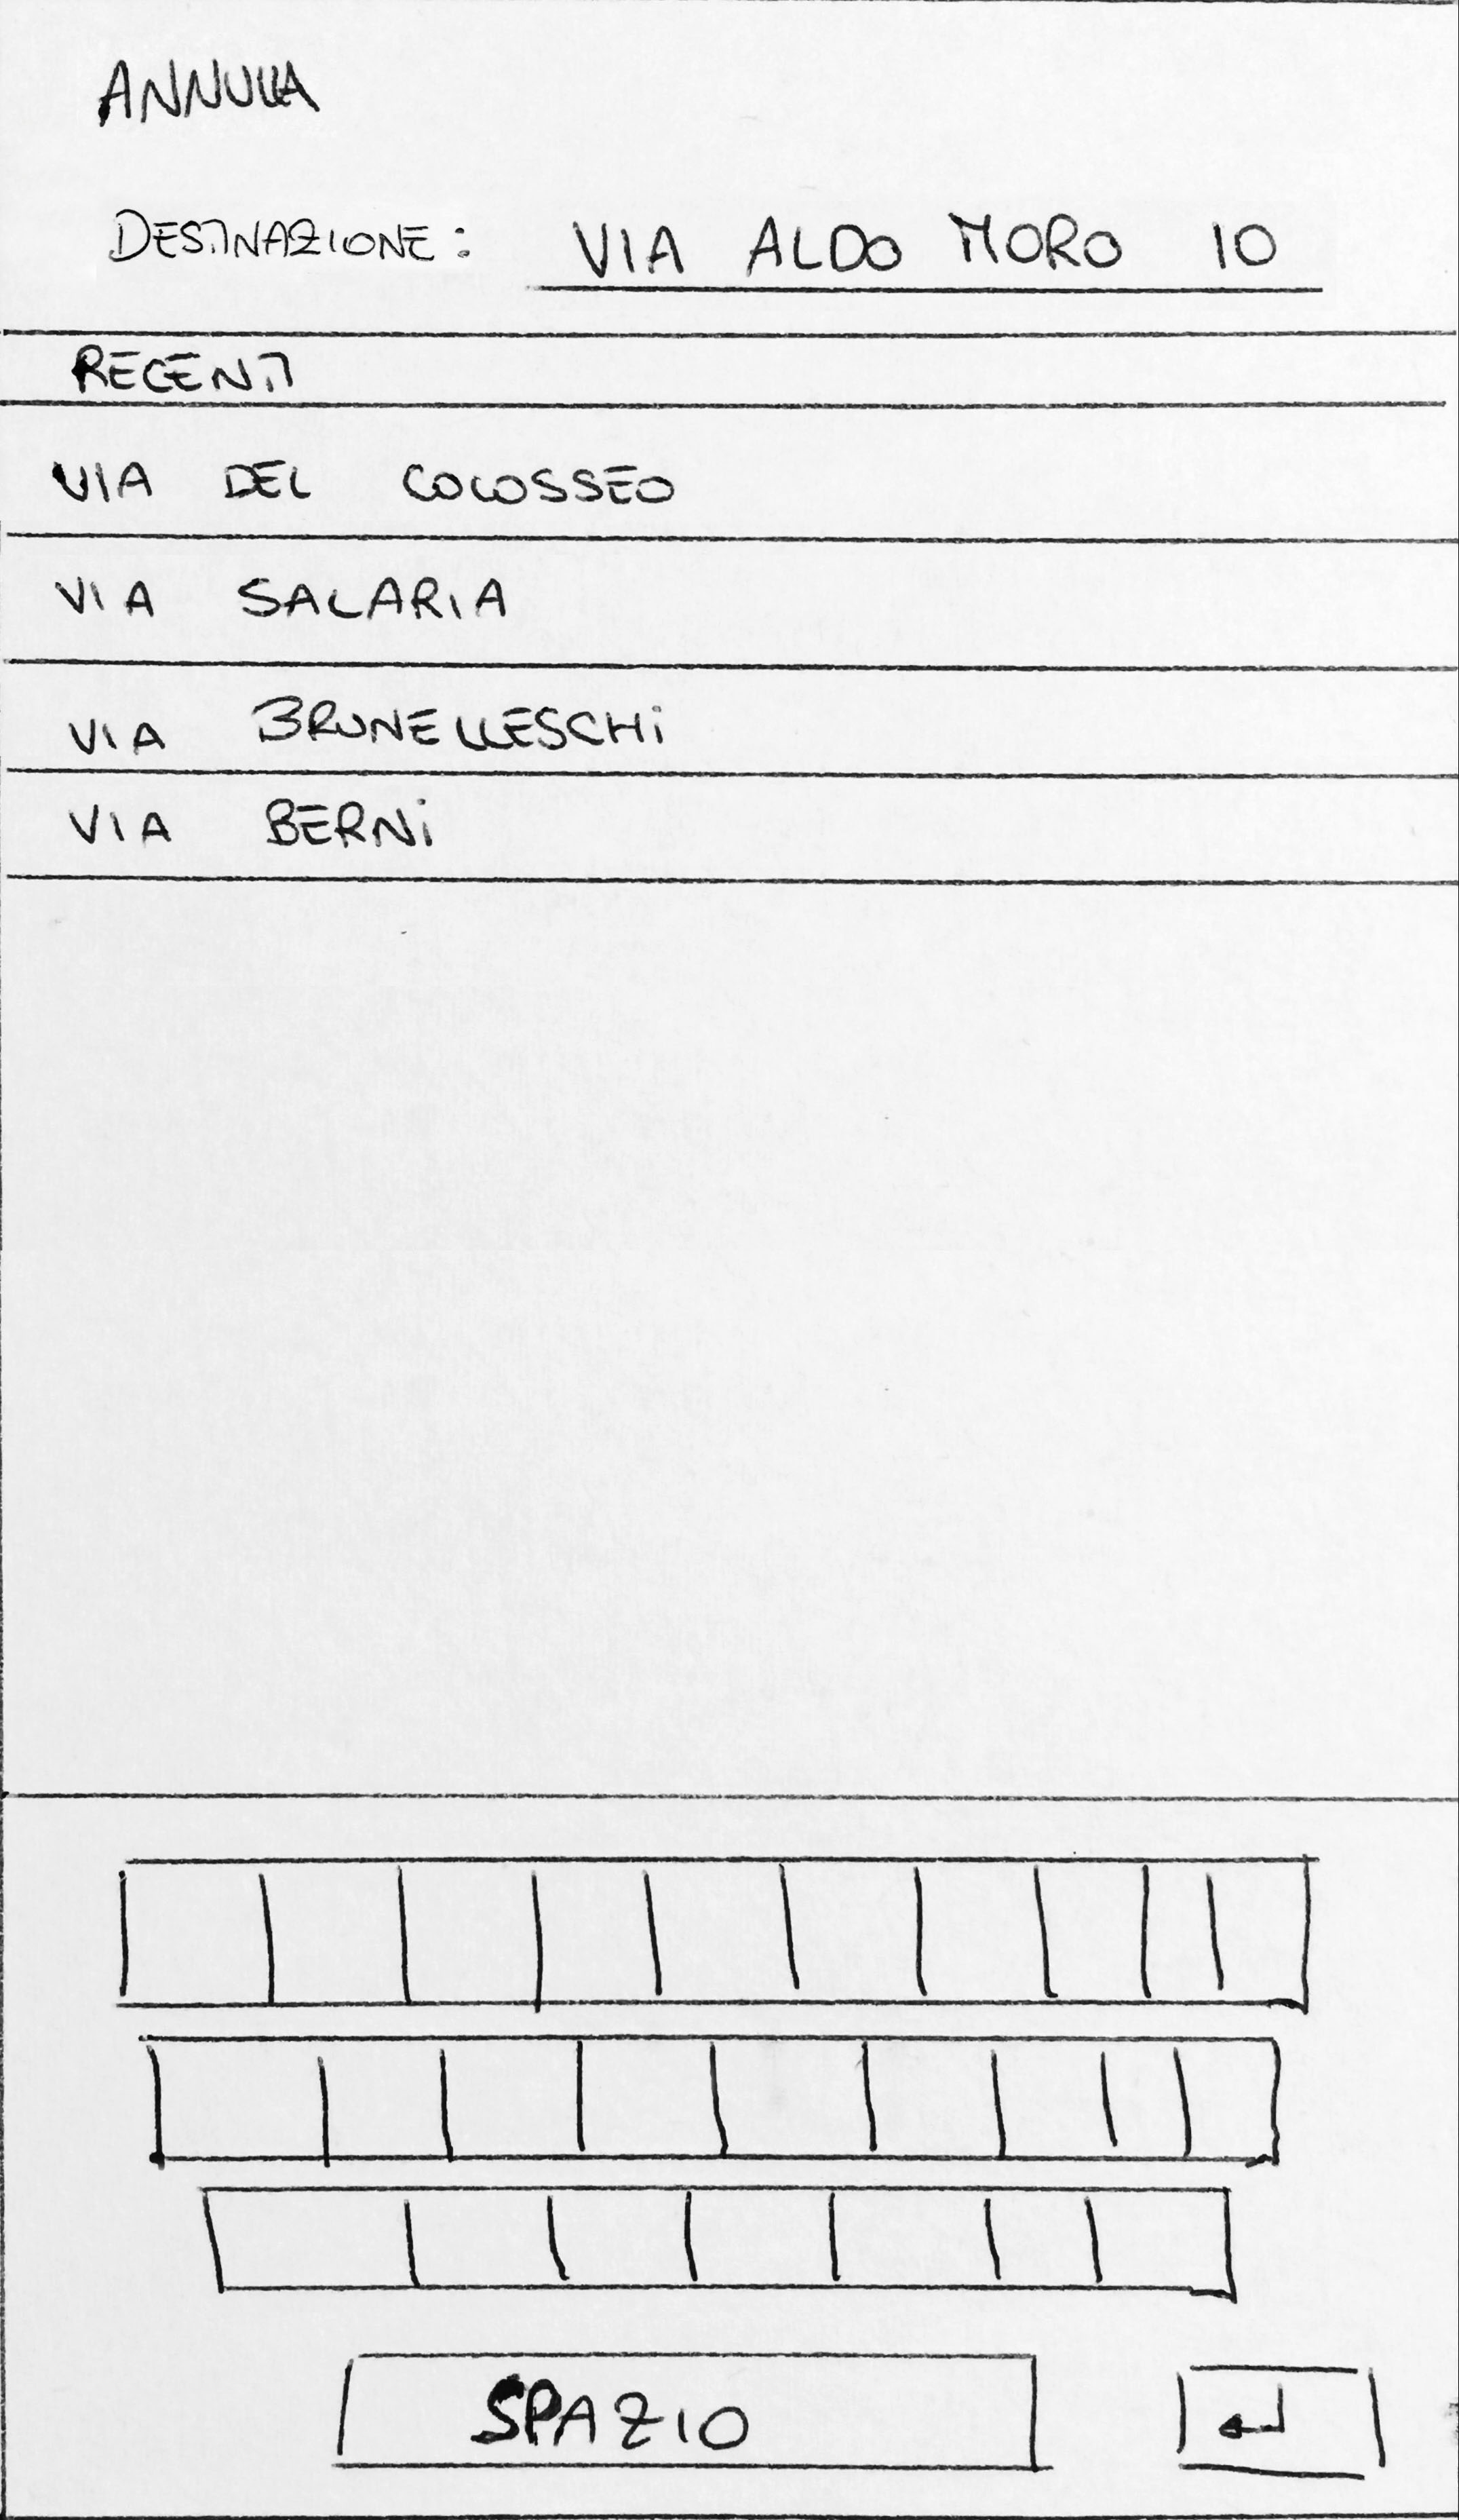 ANNULLA
DESTINAZIONE: VIA ALDO MORO 10
RECENTI
VIA DEL COLOSSEO
VIA SALARIA
VIA BRUNELLESCHi
VIA BERNi
SPAZIO